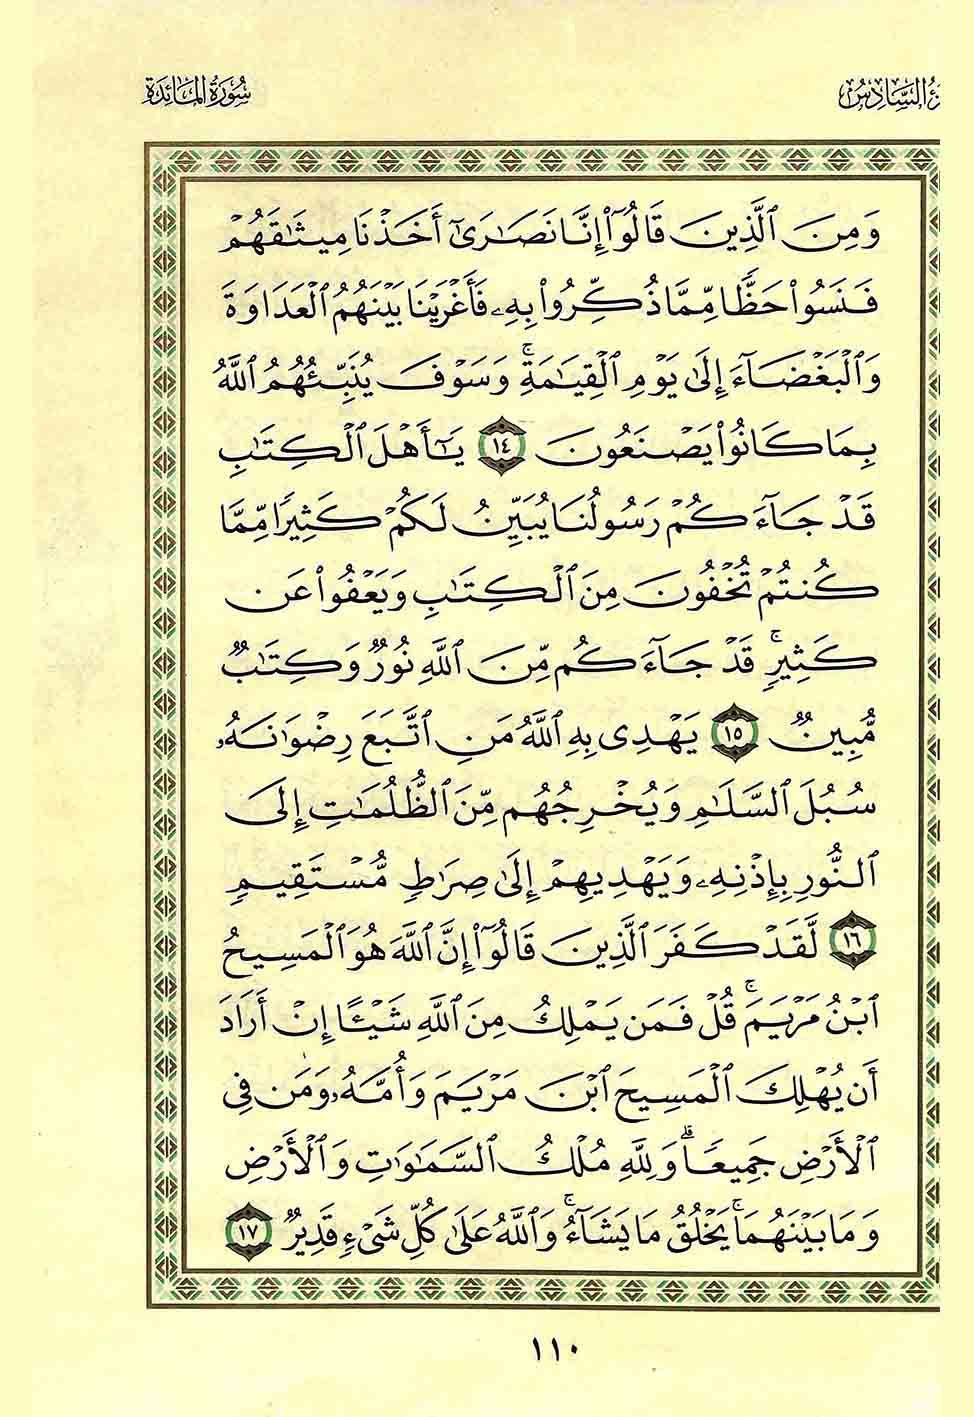 سُورَةُ المَائِدَة
السَّادِسُ
وَمِنَ ٱلَّذِينَ قَالُوٓا۟ إِنَّا نَصَـٰرَىٰٓ أَخَذْنَا مِيثَـٰقَهُمْ
فَنَسُوا۟ حَظًّا مِّمَّا ذُكِّرُوا۟ بِهِۦ فَأَغْرَيْنَا بَيْنَهُمُ ٱلْعَدَاوَةَ
وَٱلْبَغْضَآءَ إِلَىٰ يَوْمِ ٱلْقِيَـٰمَةِ ۚ وَسَوْفَ يُنَبِّئُهُمُ ٱللَّهُ
بِمَا كَانُوا۟ يَصْنَعُونَ ١٤ يَـٰٓأَهْلَ ٱلْكِتَـٰبِ
قَدْ جَآءَكُمْ رَسُولُنَا يُبَيِّنُ لَكُمْ كَثِيرًا مِّمَّا
كُنتُمْ تُخْفُونَ مِنَ ٱلْكِتَـٰبِ وَيَعْفُوا۟ عَن
كَثِيرٍ ۚ قَدْ جَآءَكُم مِّنَ ٱللَّهِ نُورٌ وَكِتَـٰبٌ
مُّبِينٌ ١٥ يَهْدِى بِهِ ٱللَّهُ مَنِ ٱتَّبَعَ رِضْوَٰنَهُۥ
سُبُلَ ٱلسَّلَـٰمِ وَيُخْرِجُهُم مِّنَ ٱلظُّلُمَـٰتِ إِلَى
ٱلنُّورِ بِإِذْنِهِۦ وَيَهْدِيهِمْ إِلَىٰ صِرَٰطٍ مُّسْتَقِيمٍ
١٦ لَّقَدْ كَفَرَ ٱلَّذِينَ قَالُوٓا۟ إِنَّ ٱللَّهَ هُوَ ٱلْمَسِيحُ
ٱبْنُ مَرْيَمَ ۚ قُلْ فَمَن يَمْلِكُ مِنَ ٱللَّهِ شَيْـًٔا إِنْ أَرَادَ
أَن يُهْلِكَ ٱلْمَسِيحَ ٱبْنَ مَرْيَمَ وَأُمَّهُۥ وَمَن فِى
ٱلْأَرْضِ جَمِيعًا ۗ وَلِلَّهِ مُلْكُ ٱلسَّمَـٰوَٰتِ وَٱلْأَرْضِ
وَمَا بَيْنَهُمَا ۚ يَخْلُقُ مَا يَشَآءُ ۚ وَٱللَّهُ عَلَىٰ كُلِّ شَىْءٍ قَدِيرٌ ١٧
١١٠